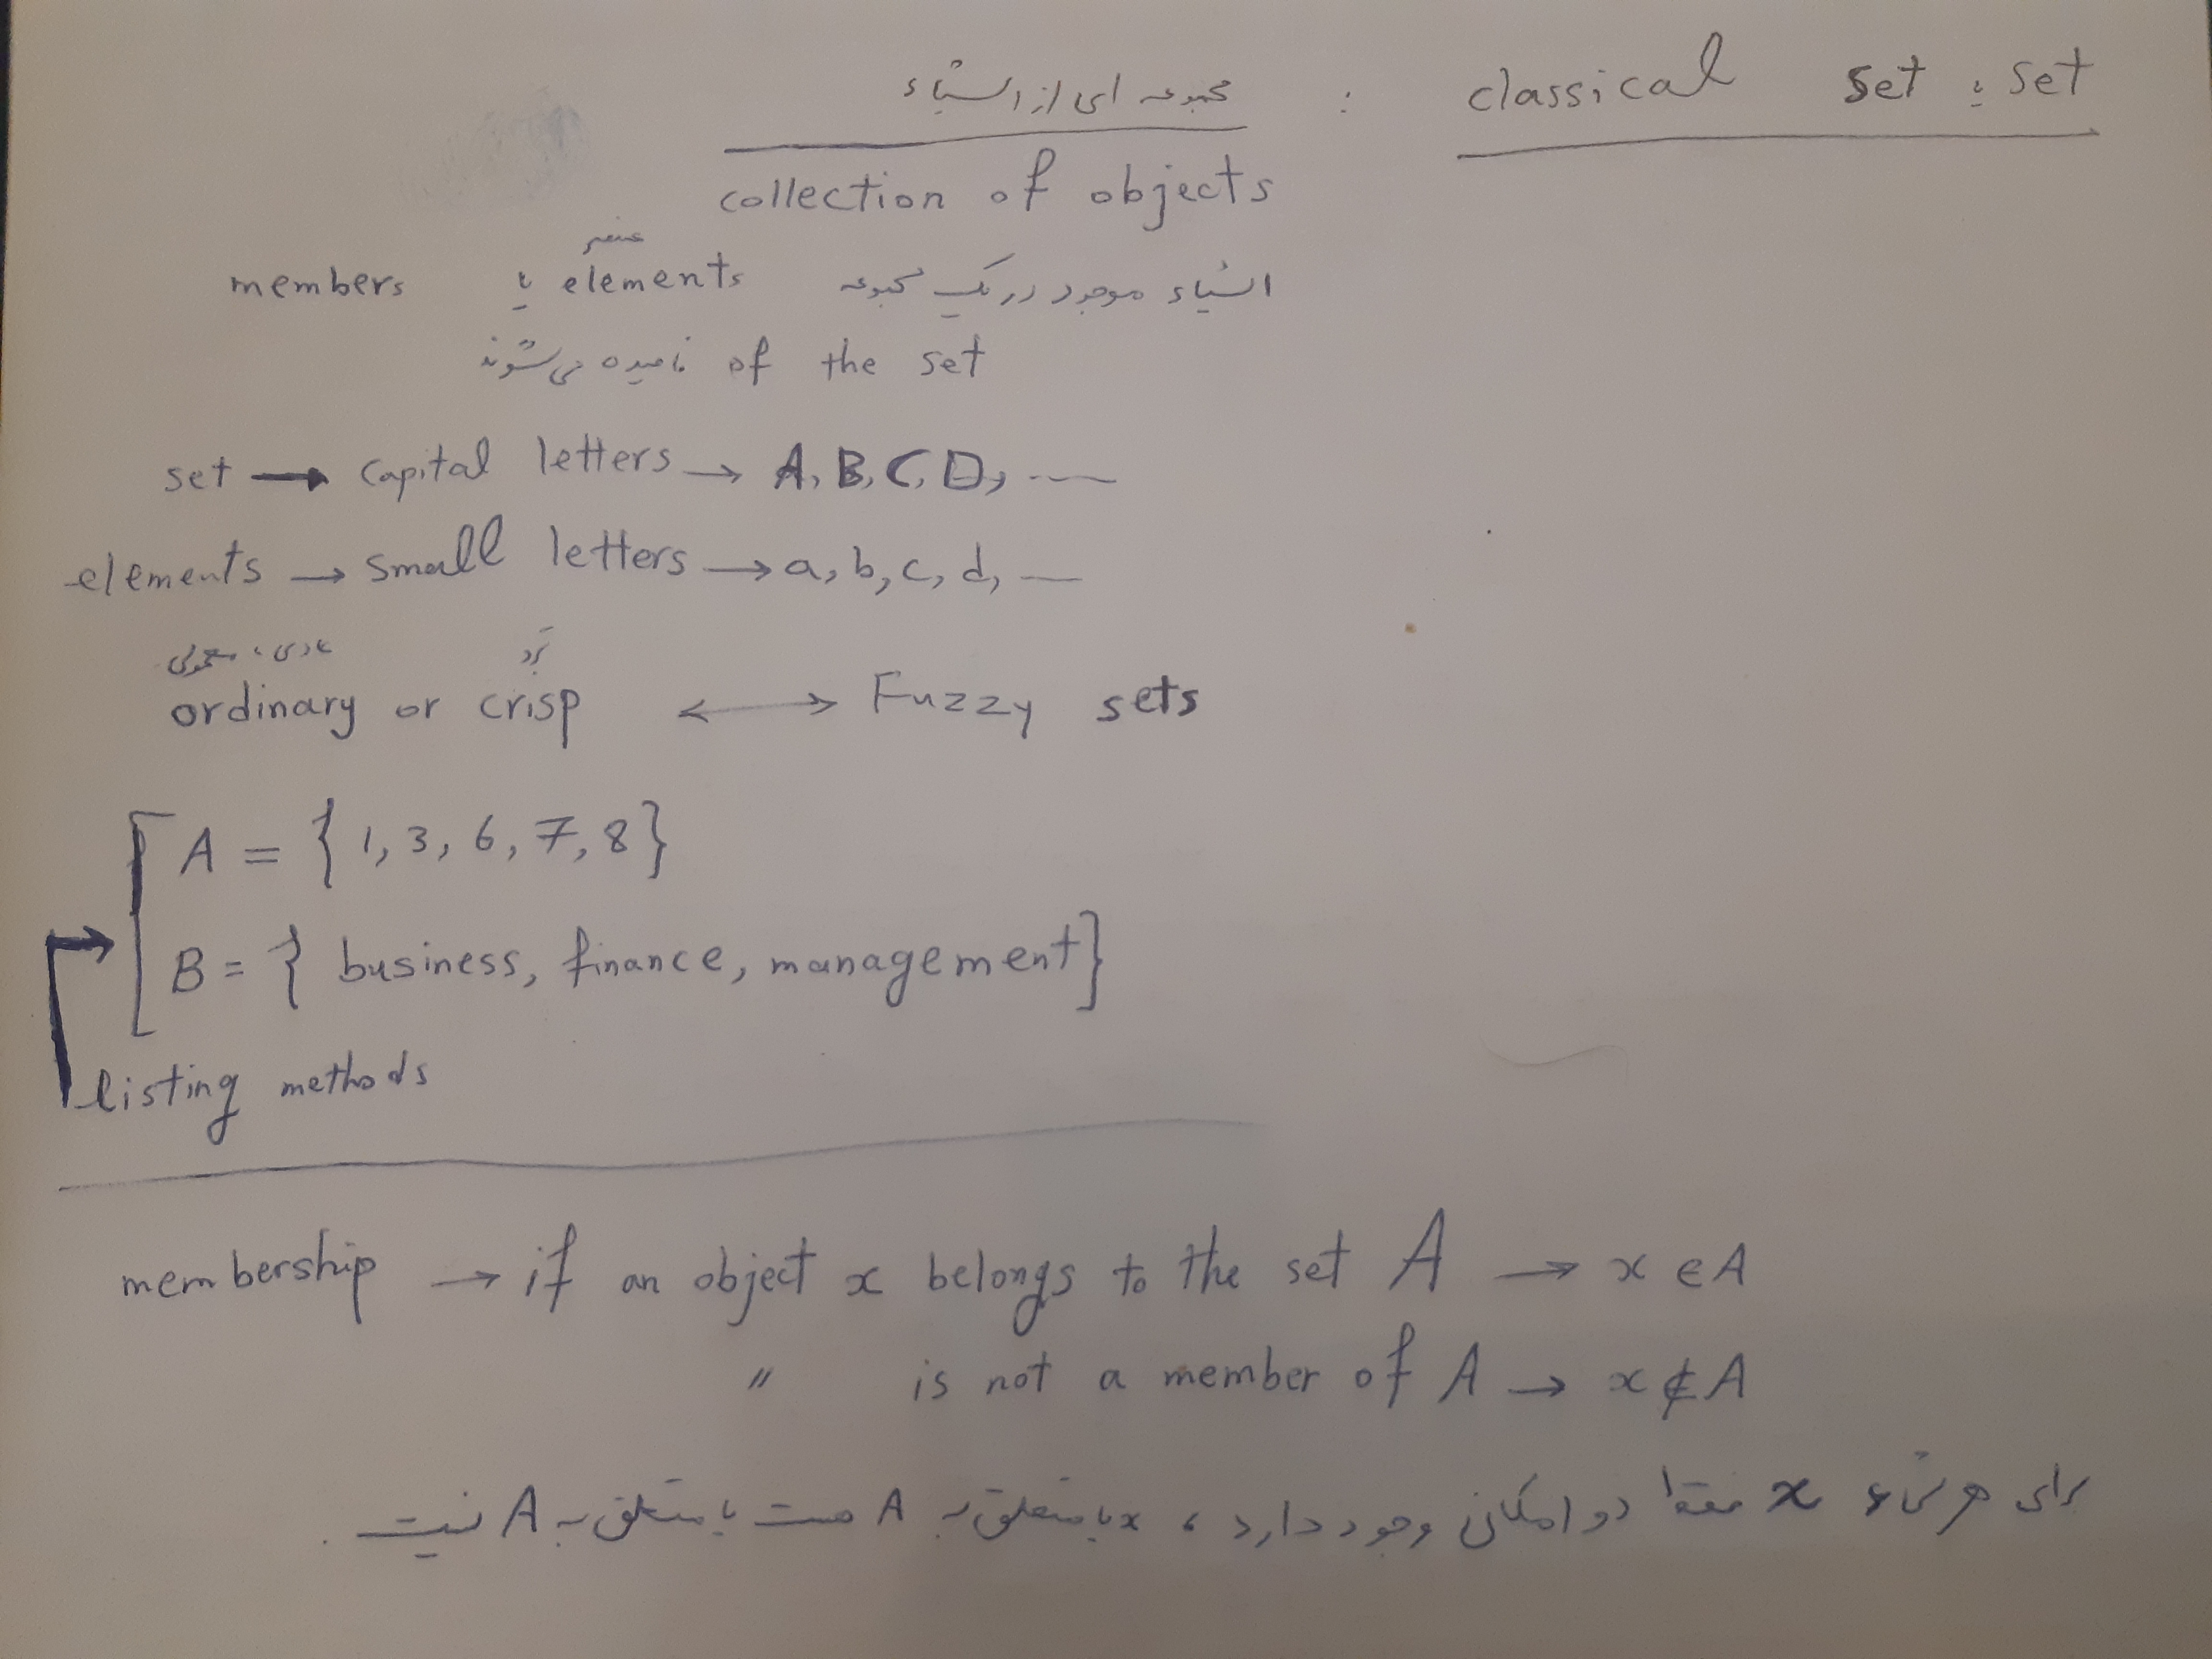 classical set یا set : مجموعه ای از اشیاء
collection of objects
اشیاء موجود در یک مجموعه elements یا members
عنصر
of the set نامیده می شوند
set → capital letters → A, B, C, D, ...
elements → small letters → a, b, c, d, ...
عادی، معمولی
ordinary or crisp ↔ Fuzzy sets
A = {1, 3, 6, 7, 8}
B = { business, finance, management}
listing methods
membership → if an object x belongs to the set A → x ∈ A
" is not a member of A → x ∉ A
برای هر شیء x دقیقا دو امکان وجود دارد، یا x متعلق به A است یا متعلق به A نیست.